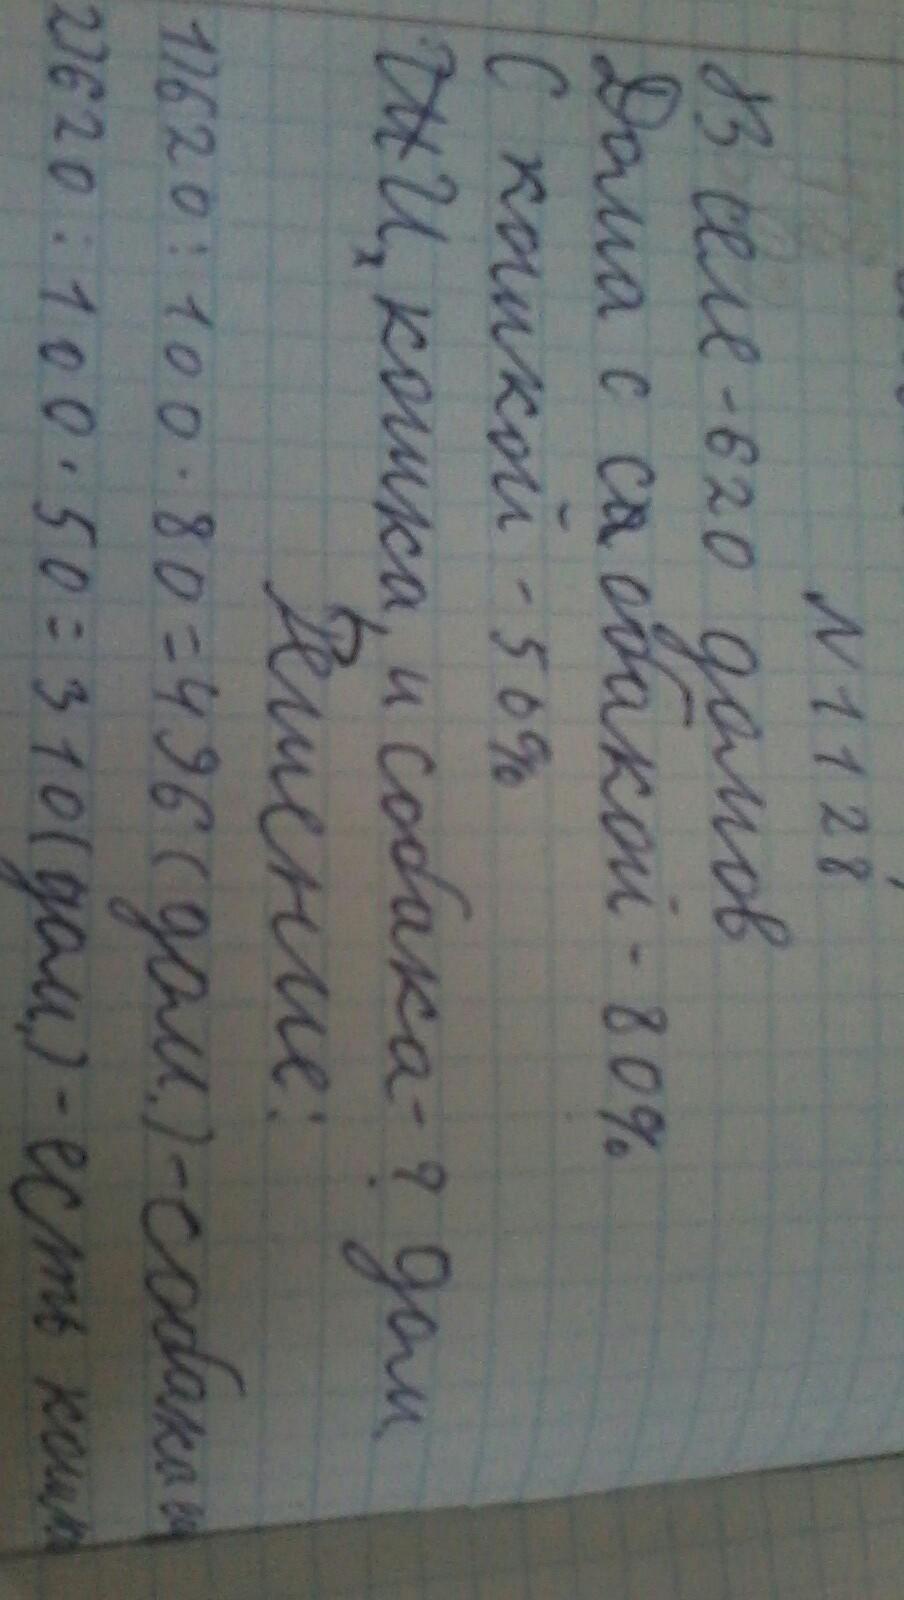 N 1128
В селе - 620 домов
Дома с сабакой - 80%
С кошкой - 50%
И, кошка, и собака - ? дом
Решение:
1)620:100·80=496(дом.)-собаками
2)620:100·50=310(дом.)-есть кошк